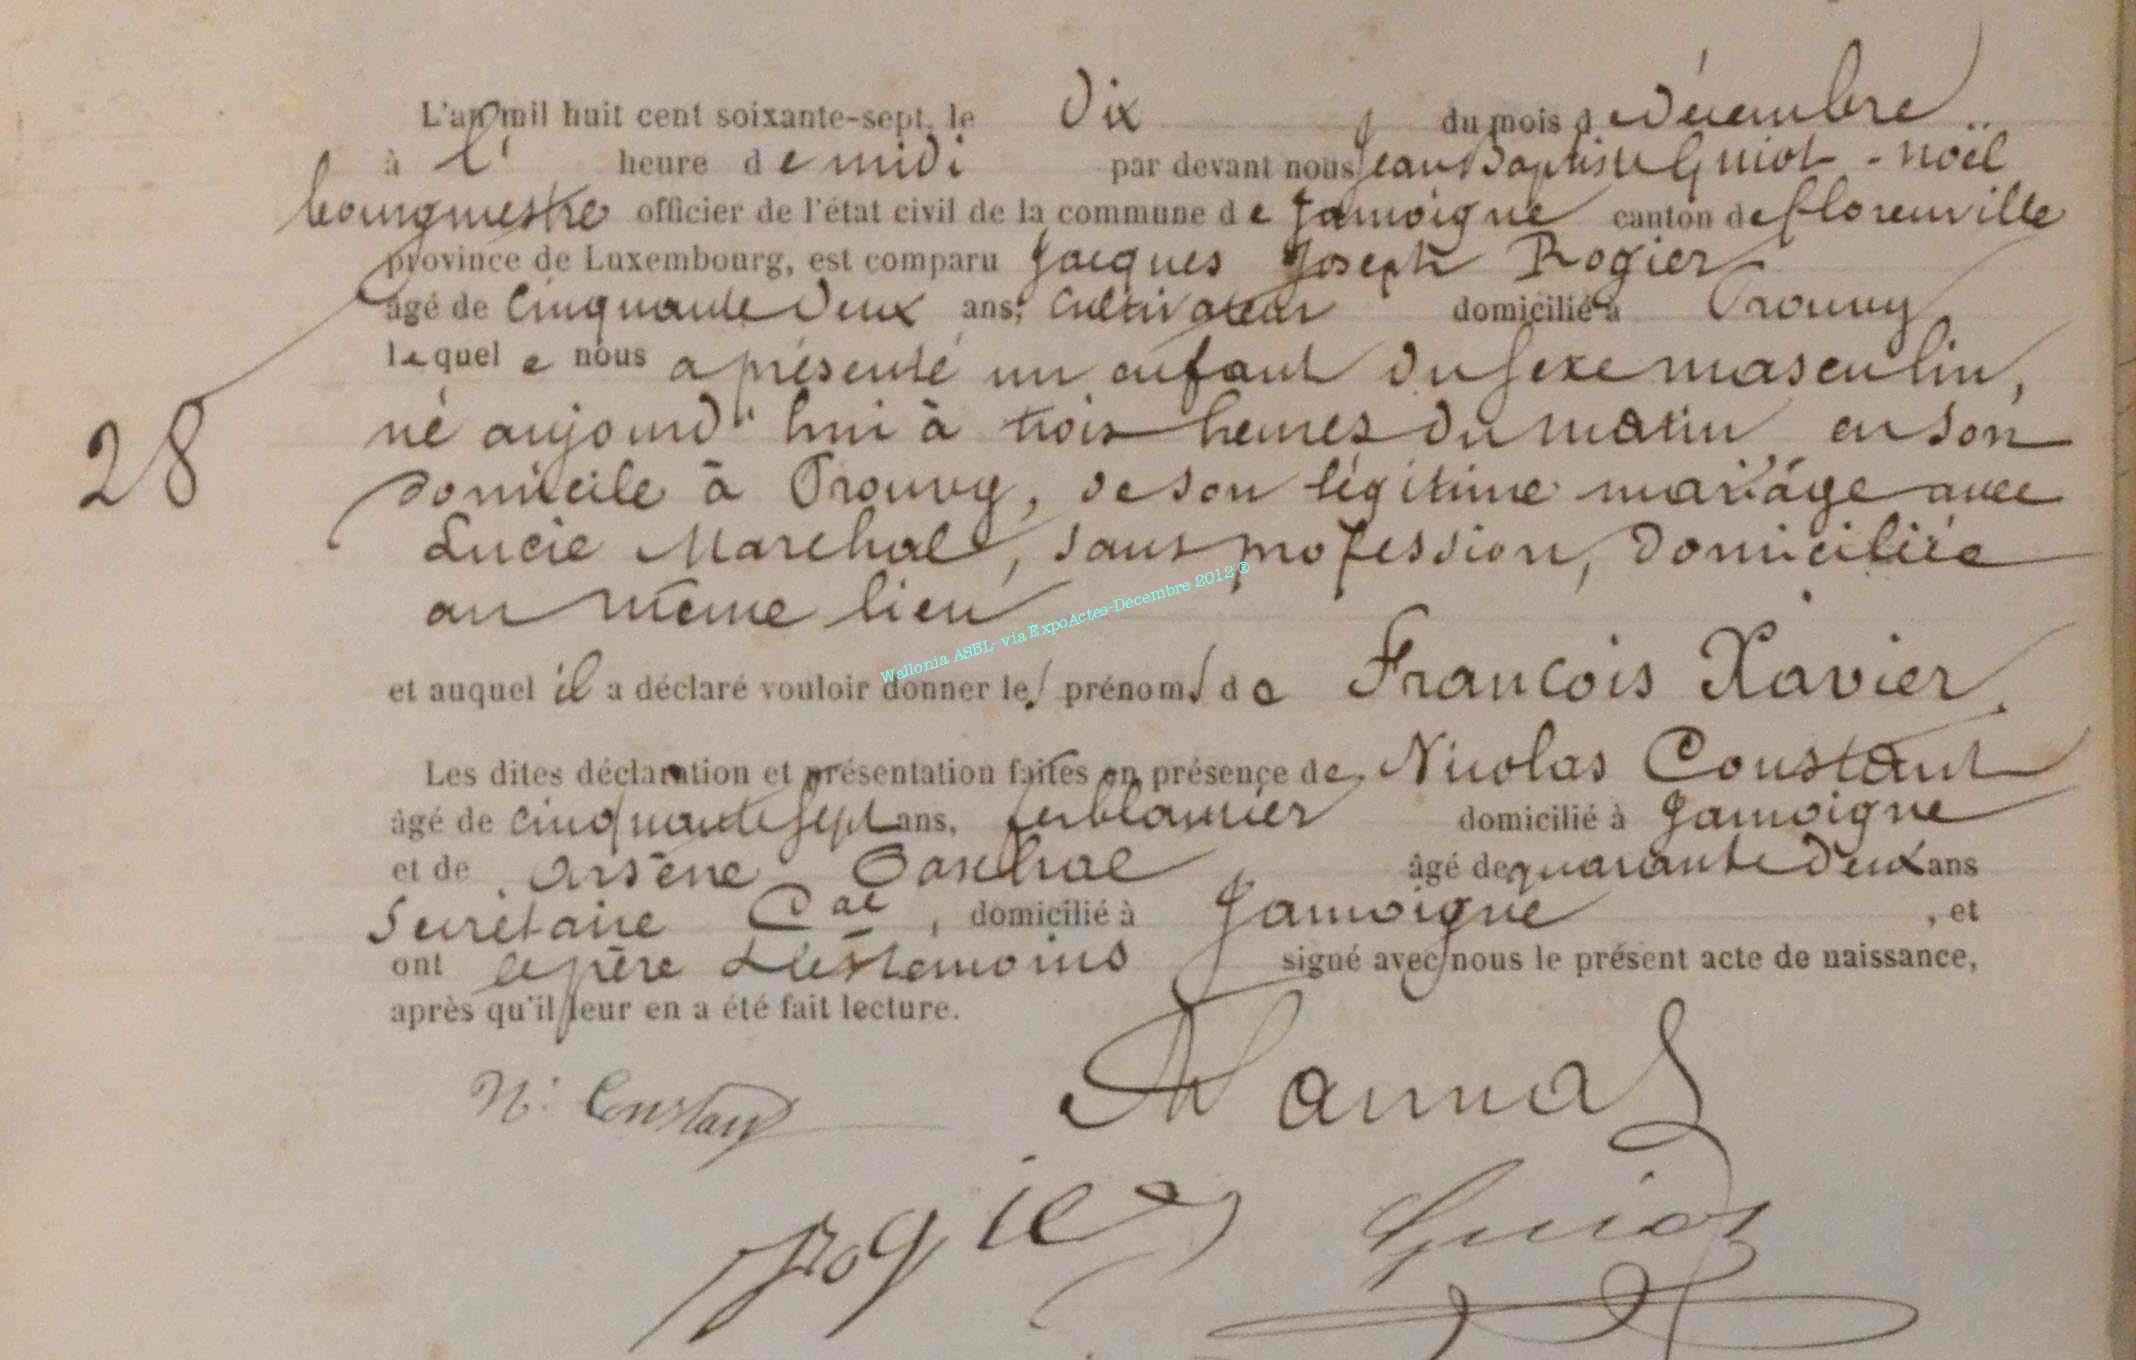 L'an mil huit cent soixante-sept, le Dix du mois d Décembre
à l' heure de midi par devant nous Jean Baptiste Guiot - noël
bourgmestre officier de l'état civil de la commune de Jamoigne canton de florenville
province de Luxembourg, est comparu Jacques Joseph Rogier
âgé de Cinquante Deux ans, Cultivateur domicilié à Prouvy
lequel e nous a présenté un enfant Du sexe masculin,
né aujourd'hui à trois heures Du matin, en son
domicile à Prouvy, de son légitime mariage avec
Lucie Marchal, sans profession, Domiciliée
au même lieu
et auquel il a déclaré vouloir donner les prénoms de Francois Xavier.
Les dites déclaration et présentation faites en présence de Nicolas Constant
âgé de cinquante sept ans, ferblantier domicilié à Jamoigne
et de arsène âgé de quarante Deux ans
Secrétaire Cal, domicilié à Jamoigne, et
ont le père & les témoins signé avec nous le présent acte de naissance,
après qu'il leur en a été fait lecture.
28
Wallonia ASBL- via ExpoActes-Decembre 2012 ®
N. Constant
Rogier Guiot